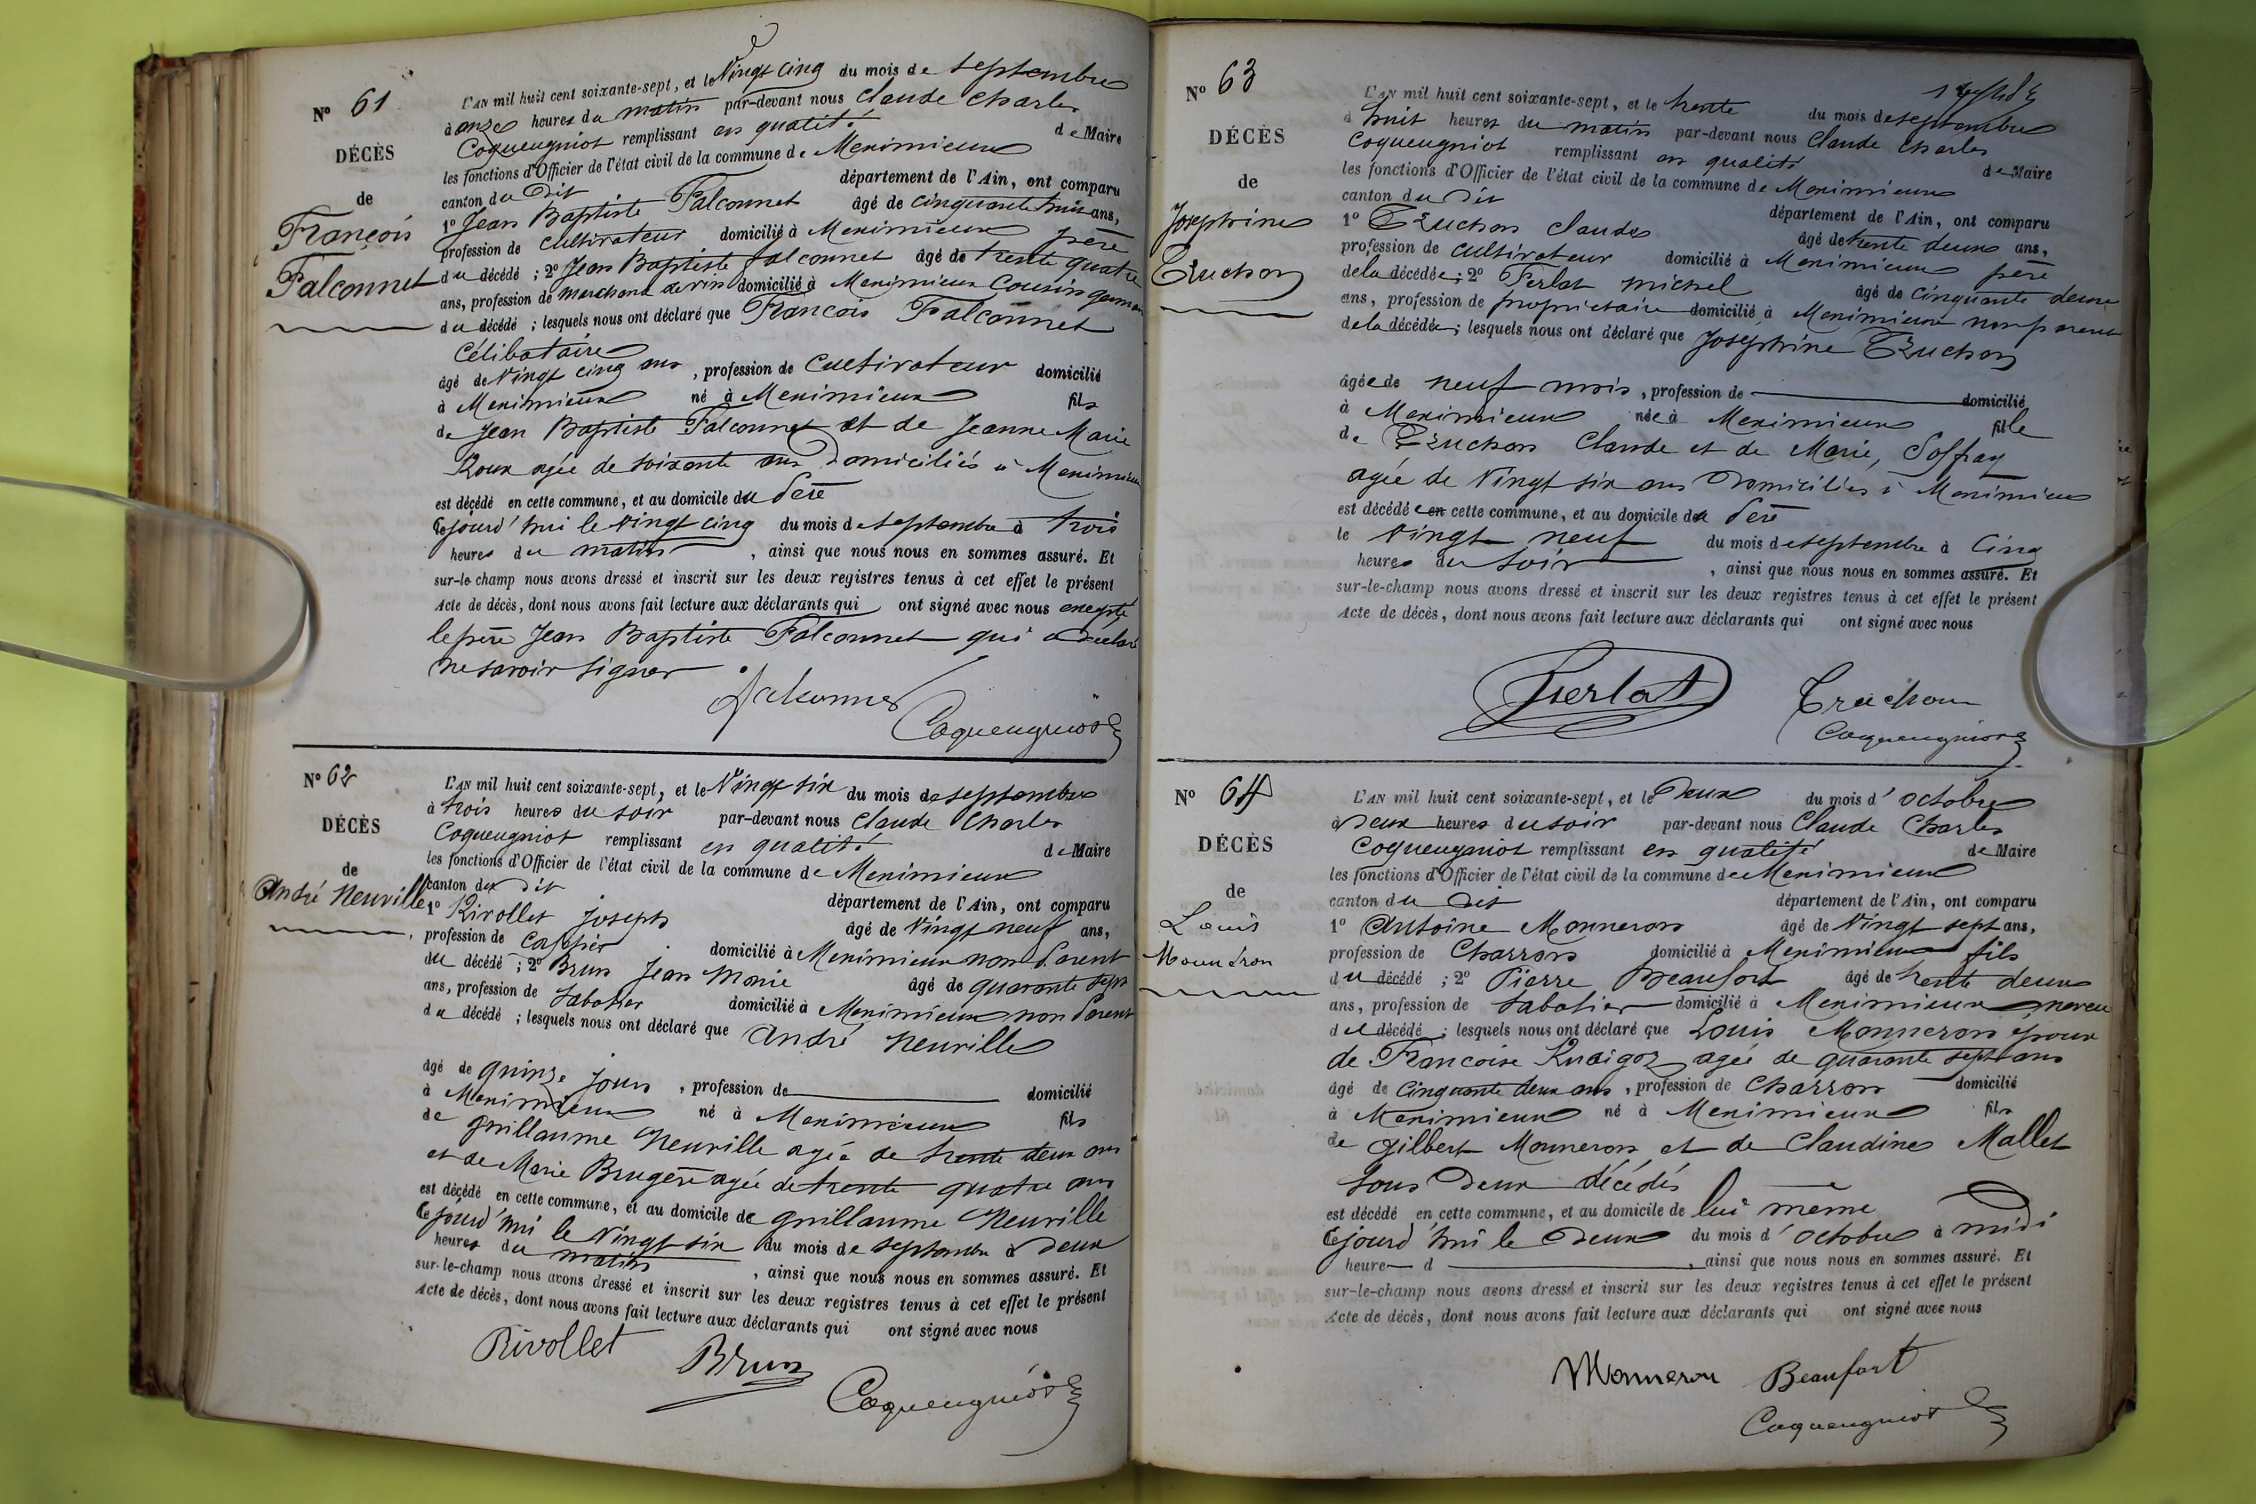 N° 61
DÉCÈS
de
François
Falconnet
L'AN mil huit cent soixante-sept, et le Vingt cinq du mois de septembre
à onze heures du matin par-devant nous Claude Charles
Coqueugniot remplissant en qualité de Maire
les fonctions d'Officier de l'état civil de la commune de Meximieux
canton du Dit département de l'Ain, ont comparu
1° Jean Baptiste Falconnet âgé de cinquante ans,
profession de cultivateur domicilié à Meximieux père
du décédé ; 2° Jean Baptiste falconnet âgé de trente quatre
ans, profession de marchand de vin domicilié à Meximieux Cousin germain
du décédé ; lesquels nous ont déclaré que François Falconnet
Célibataire
âgé de Vingt cinq ans, profession de Cultivateur domicilié
à Meximieux né à Meximieux fils
de Jean Baptiste Falconnet et de Jeanne Marie
Roux agée de soixante ans Domiciliés à Meximieux
est décédé en cette commune, et au domicile du Père
Cejourd'hui le vingt cinq du mois de septembre à trois
heures du matin, ainsi que nous nous en sommes assuré. Et
sur-le-champ nous avons dressé et inscrit sur les deux registres tenus à cet effet le présent
Acte de décès, dont nous avons fait lecture aux déclarants qui ont signé avec nous excepté
le père Jean Baptiste Falconnet qui a déclaré
ne savoir signer
falconnet
Coqueugniot
N° 62
DÉCÈS
de
André Neuville
L'AN mil huit cent soixante-sept, et le Vingt six du mois de septembre
à trois heures du soir par-devant nous Claude Charles
Coqueugniot remplissant en qualité de Maire
les fonctions d'Officier de l'état civil de la commune de Meximieux
canton du dit département de l'Ain, ont comparu
1° Rivollet Joseph âgé de Vingt neuf ans,
profession de Cafetier domicilié à Meximieux non Parent
du décédé ; 2° Brun Jean Marie âgé de quarante sept
ans, profession de Sabotier domicilié à Meximieux non Parent
du décédé ; lesquels nous ont déclaré que André Neuville
âgé de quinze jours, profession de domicilié
à Meximieux né à Meximieux fils
de Guillaume Neuville agé de trente deux ans
et de Marie Brugère agée de trente quatre ans
est décédé en cette commune, et au domicile de Guillaume Neuville
Cejourd'hui le Vingt six du mois de septembre à Deux
heures du matin, ainsi que nous nous en sommes assuré. Et
sur-le-champ nous avons dressé et inscrit sur les deux registres tenus à cet effet le présent
Acte de décès, dont nous avons fait lecture aux déclarants qui ont signé avec nous
Rivollet
Brun
Coqueugniot
N° 63
DÉCÈS
de
Josephine
Truchon
L'AN mil huit cent soixante-sept, et le trente du mois de septembre
à huit heures du matin par-devant nous Claude Charles
Coqueugniot remplissant en qualité de Maire
les fonctions d'Officier de l'état civil de la commune de Meximieux
canton du Dit département de l'Ain, ont comparu
1° Truchon Claude âgé de trente deux ans,
profession de cultivateur domicilié à Meximieux père
de la décédée ; 2° Ferlat michel âgé de cinquante deux
ans, profession de propriétaire domicilié à Meximieux non parent
de la décédée ; lesquels nous ont déclaré que Josephine Truchon
âgée de neuf mois, profession de domicilié
à Meximieux née à Meximieux fille
de Truchon Claude et de Marie Soffray
agée de Vingt six ans Domiciliés à Meximieux
est décédée en cette commune, et au domicile du Père
le Vingt neuf du mois de septembre à Cinq
heures du soir, ainsi que nous nous en sommes assuré. Et
sur-le-champ nous avons dressé et inscrit sur les deux registres tenus à cet effet le présent
Acte de décès, dont nous avons fait lecture aux déclarants qui ont signé avec nous
Ferlat
Truchon
Coqueugniot
N° 64
DÉCÈS
de
Louis
Monneron
L'AN mil huit cent soixante-sept, et le Deux du mois d'octobre
à Deux heures du soir par-devant nous Claude Charles
Coqueugniot remplissant en qualité de Maire
les fonctions d'Officier de l'état civil de la commune de Meximieux
canton du Dit département de l'Ain, ont comparu
1° Antoine Monneron âgé de Vingt sept ans,
profession de Charron domicilié à Meximieux fils
du décédé ; 2° Pierre Beaufort âgé de trente deux
ans, profession de Sabotier domicilié à Meximieux neveu
du décédé ; lesquels nous ont déclaré que Louis Monneron époux
de Francoise agée de quarante sept ans
âgé de Cinquante deux ans, profession de Charron domicilié
à Meximieux né à Meximieux fils
de Gilbert Monneron et de Claudine Mallet
tous Deux décédés
est décédé en cette commune, et au domicile de lui même
Cejourd'hui le Deux du mois d'octobre à midi
heure d, ainsi que nous nous en sommes assuré. Et
sur-le-champ nous avons dressé et inscrit sur les deux registres tenus à cet effet le présent
Acte de décès, dont nous avons fait lecture aux déclarants qui ont signé avec nous
Monneron Beaufort
Coqueugniot